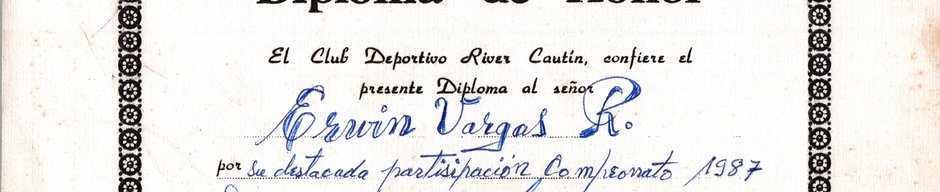 Diploma de Honor
El Club Deportivo River Cautín, confiere el
presente Diploma al señor
Erwin Vargas R.
por su destacada partisipación Campeonato 1987